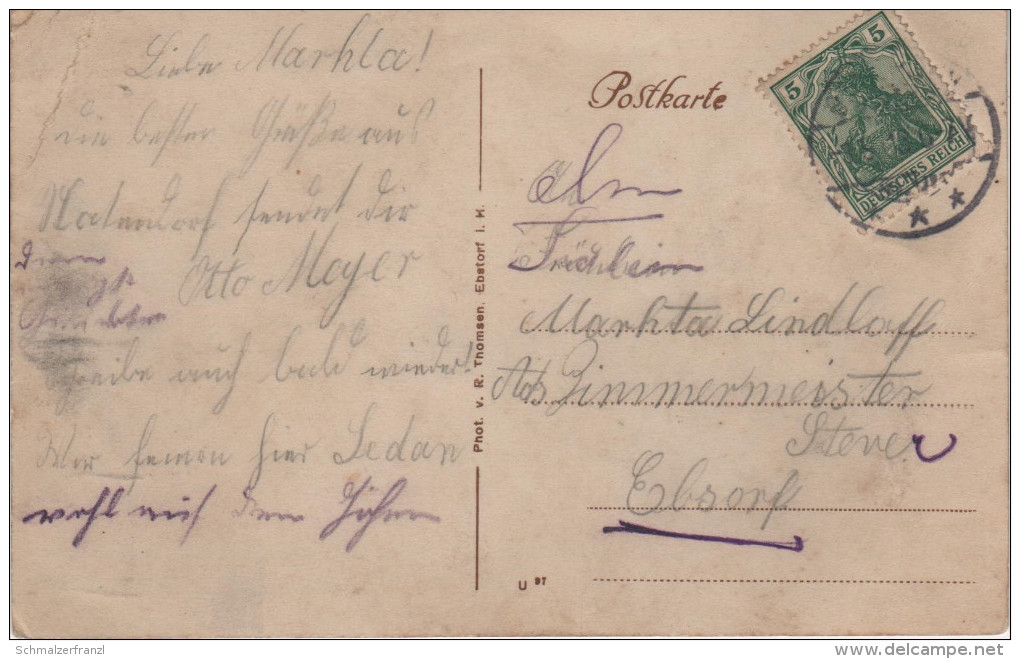 Liebe Markta!
die besten Grüße aus
Natendorf sendet dir
Otto Meyer
schreibe auch bald wieder!
Wir feiern hier Sedan
wohl auf den Höhen
Phot. v. R. Thomsen, Ebstorf i. H.
Postkarte
5 5
DEUTSCHES REICH
An
Fräulein
Markta Lindloff
Zimmermeister
Stever
Ebsorf
U 97
Schmalzerfranzl
delcampe.net